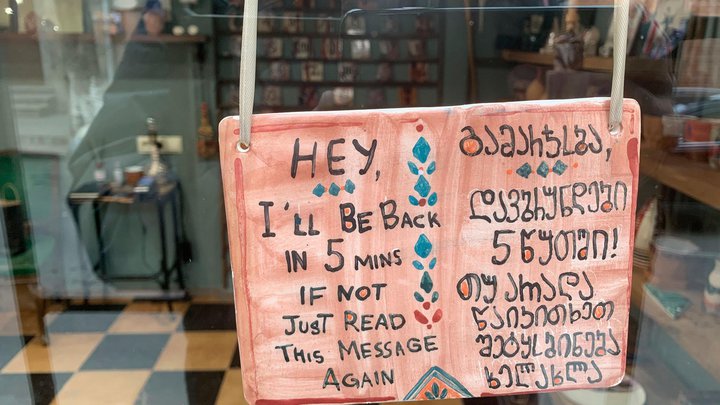 HEY,
I'LL BE BACK
IN 5 MINS
IF NOT
JUST READ
THIS MESSAGE
AGAIN
გამარჯობა,
დავბრუნდები
5 წუთში!
თუ არადა
წაიკითხეთ
შეტყობინება
ხელახლა